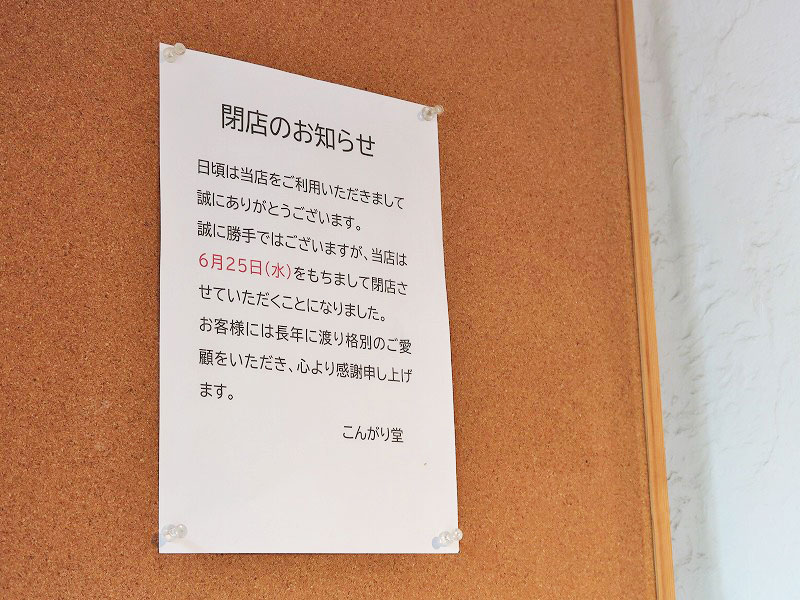 閉店のお知らせ
日頃は当店をご利用いただきまして
誠にありがとうございます。
誠に勝手ではございますが、当店は
6月25日(水)をもちまして閉店さ
せていただくことになりました。
お客様には長年に渡り格別のご愛
顧をいただき、心より感謝申し上げ
ます。
こんがり堂